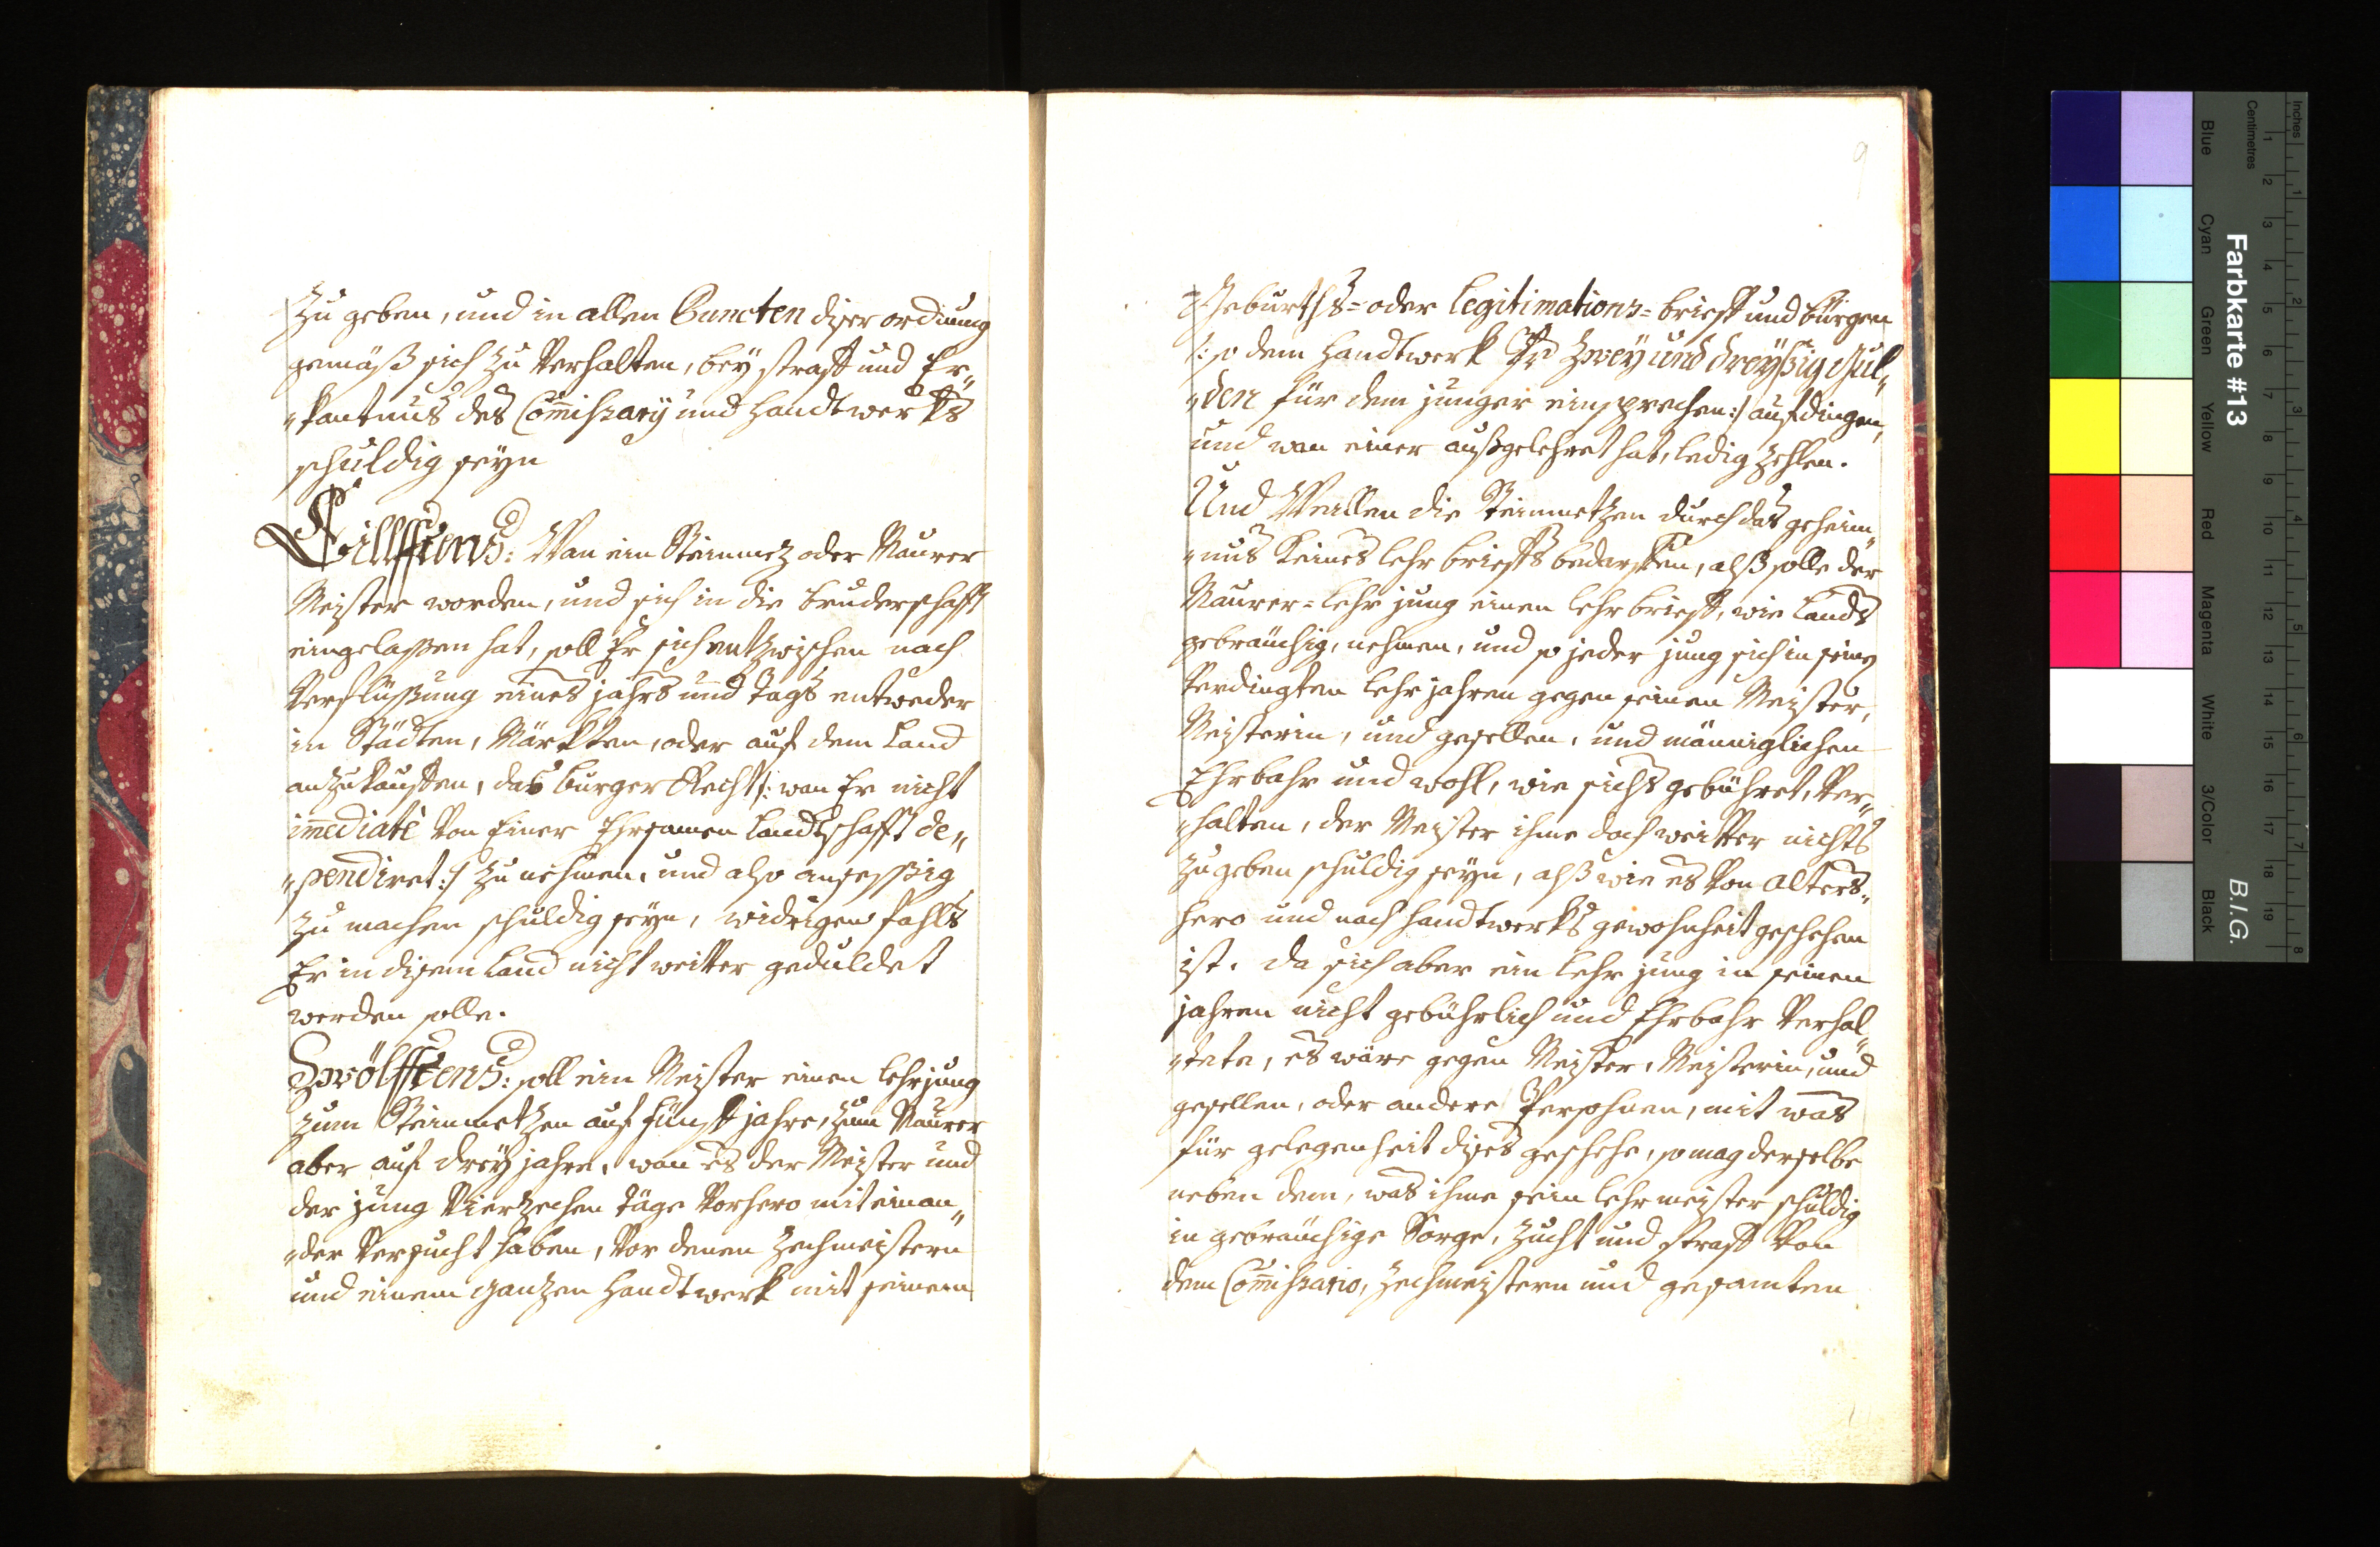 zu geben, und in allen Puncten diser ordnung
gemäß sich zu Verhalten, bey straff und Er„
„kantnus des Com̄issarÿ und handtwerkhs
schuldig seyn
Eillfftens: Wan ein Steinmez oder Maurer
Meister worden, und sich in die bruderschafft
eingelassen hat, soll Er sich entzwischen nach
Verflüssung eines jahrs und tags entweder
in Stădten, Mărkhten, oder auf dem Land
anzukauffen, das burger Recht /: wan Er nicht
im̄ediatè Von Einer Ehrsamen Landtschafft de„
„pendiret :/ zu nehmen, und also ansessßig
zu machen schuldig seyn, widrigen fahls
Er in disem Land nicht weitter geduldet
werden solle.
Zwölfftens: soll ein Meister einen lehrjung
zum Steinmetzen auf fünff jahre, zum Maurer
aber auf dreÿ jahre, wan es der Meister und
der jung Vierzechen täge Vorhero mit einan„
„der Versucht haben, Vor denen Zechmeistern
und einem ganzen handtwerk mit seinem
9
Geburths= oder Legitimations= brieff und bürgen
/: so dem handtwerk Pr Zweÿ und dreÿßig Gul„
„den für dem junger einsprechen :/ aufdingen,
und wan einer außgelehret hat, ledig zehlen.
Und Weillen die Steinmetzen durch das geheim„
„nus keines lehr brieffs bedarffen, alß solle der
Maurer= lehr jung einen lehr brieff, wie Lands
gebräuchig, nehmen, und so jeder jung sich in seinen
Verdingten lehr jahren gegen seinen Meister,
Meisterin, und gesellen, und männiglichen
Ehrbahr und wohl, wie sichs gebühret, Ver„
„halten, der Meister ihme doch weitter nichts
zu geben schuldig seyn, alß wie es Von alters„
hero und nach handtwerks gewohnheit geschehen
ist. da sich aber ein lehr jung in seinen
jahren nicht gebührlich und Ehrbahr Verhal„
„tete, es wäre gegen Meister, Meisterin, und
gesellen, oder andere Persohnen, mit was
für gelegenheit dises geschehe, so mag derselbe
neben dem, was ihme sein lehr meister schuldig
in gebräuchige Sorge, Zucht und straff Von
dem Com̄issario, Zechmeistern und gesamten
Farbkarte #13
B.I.G.
Inches
Centimetres
Blue
Cyan
Green
Yellow
Red
Magenta
White
3/Color
Black